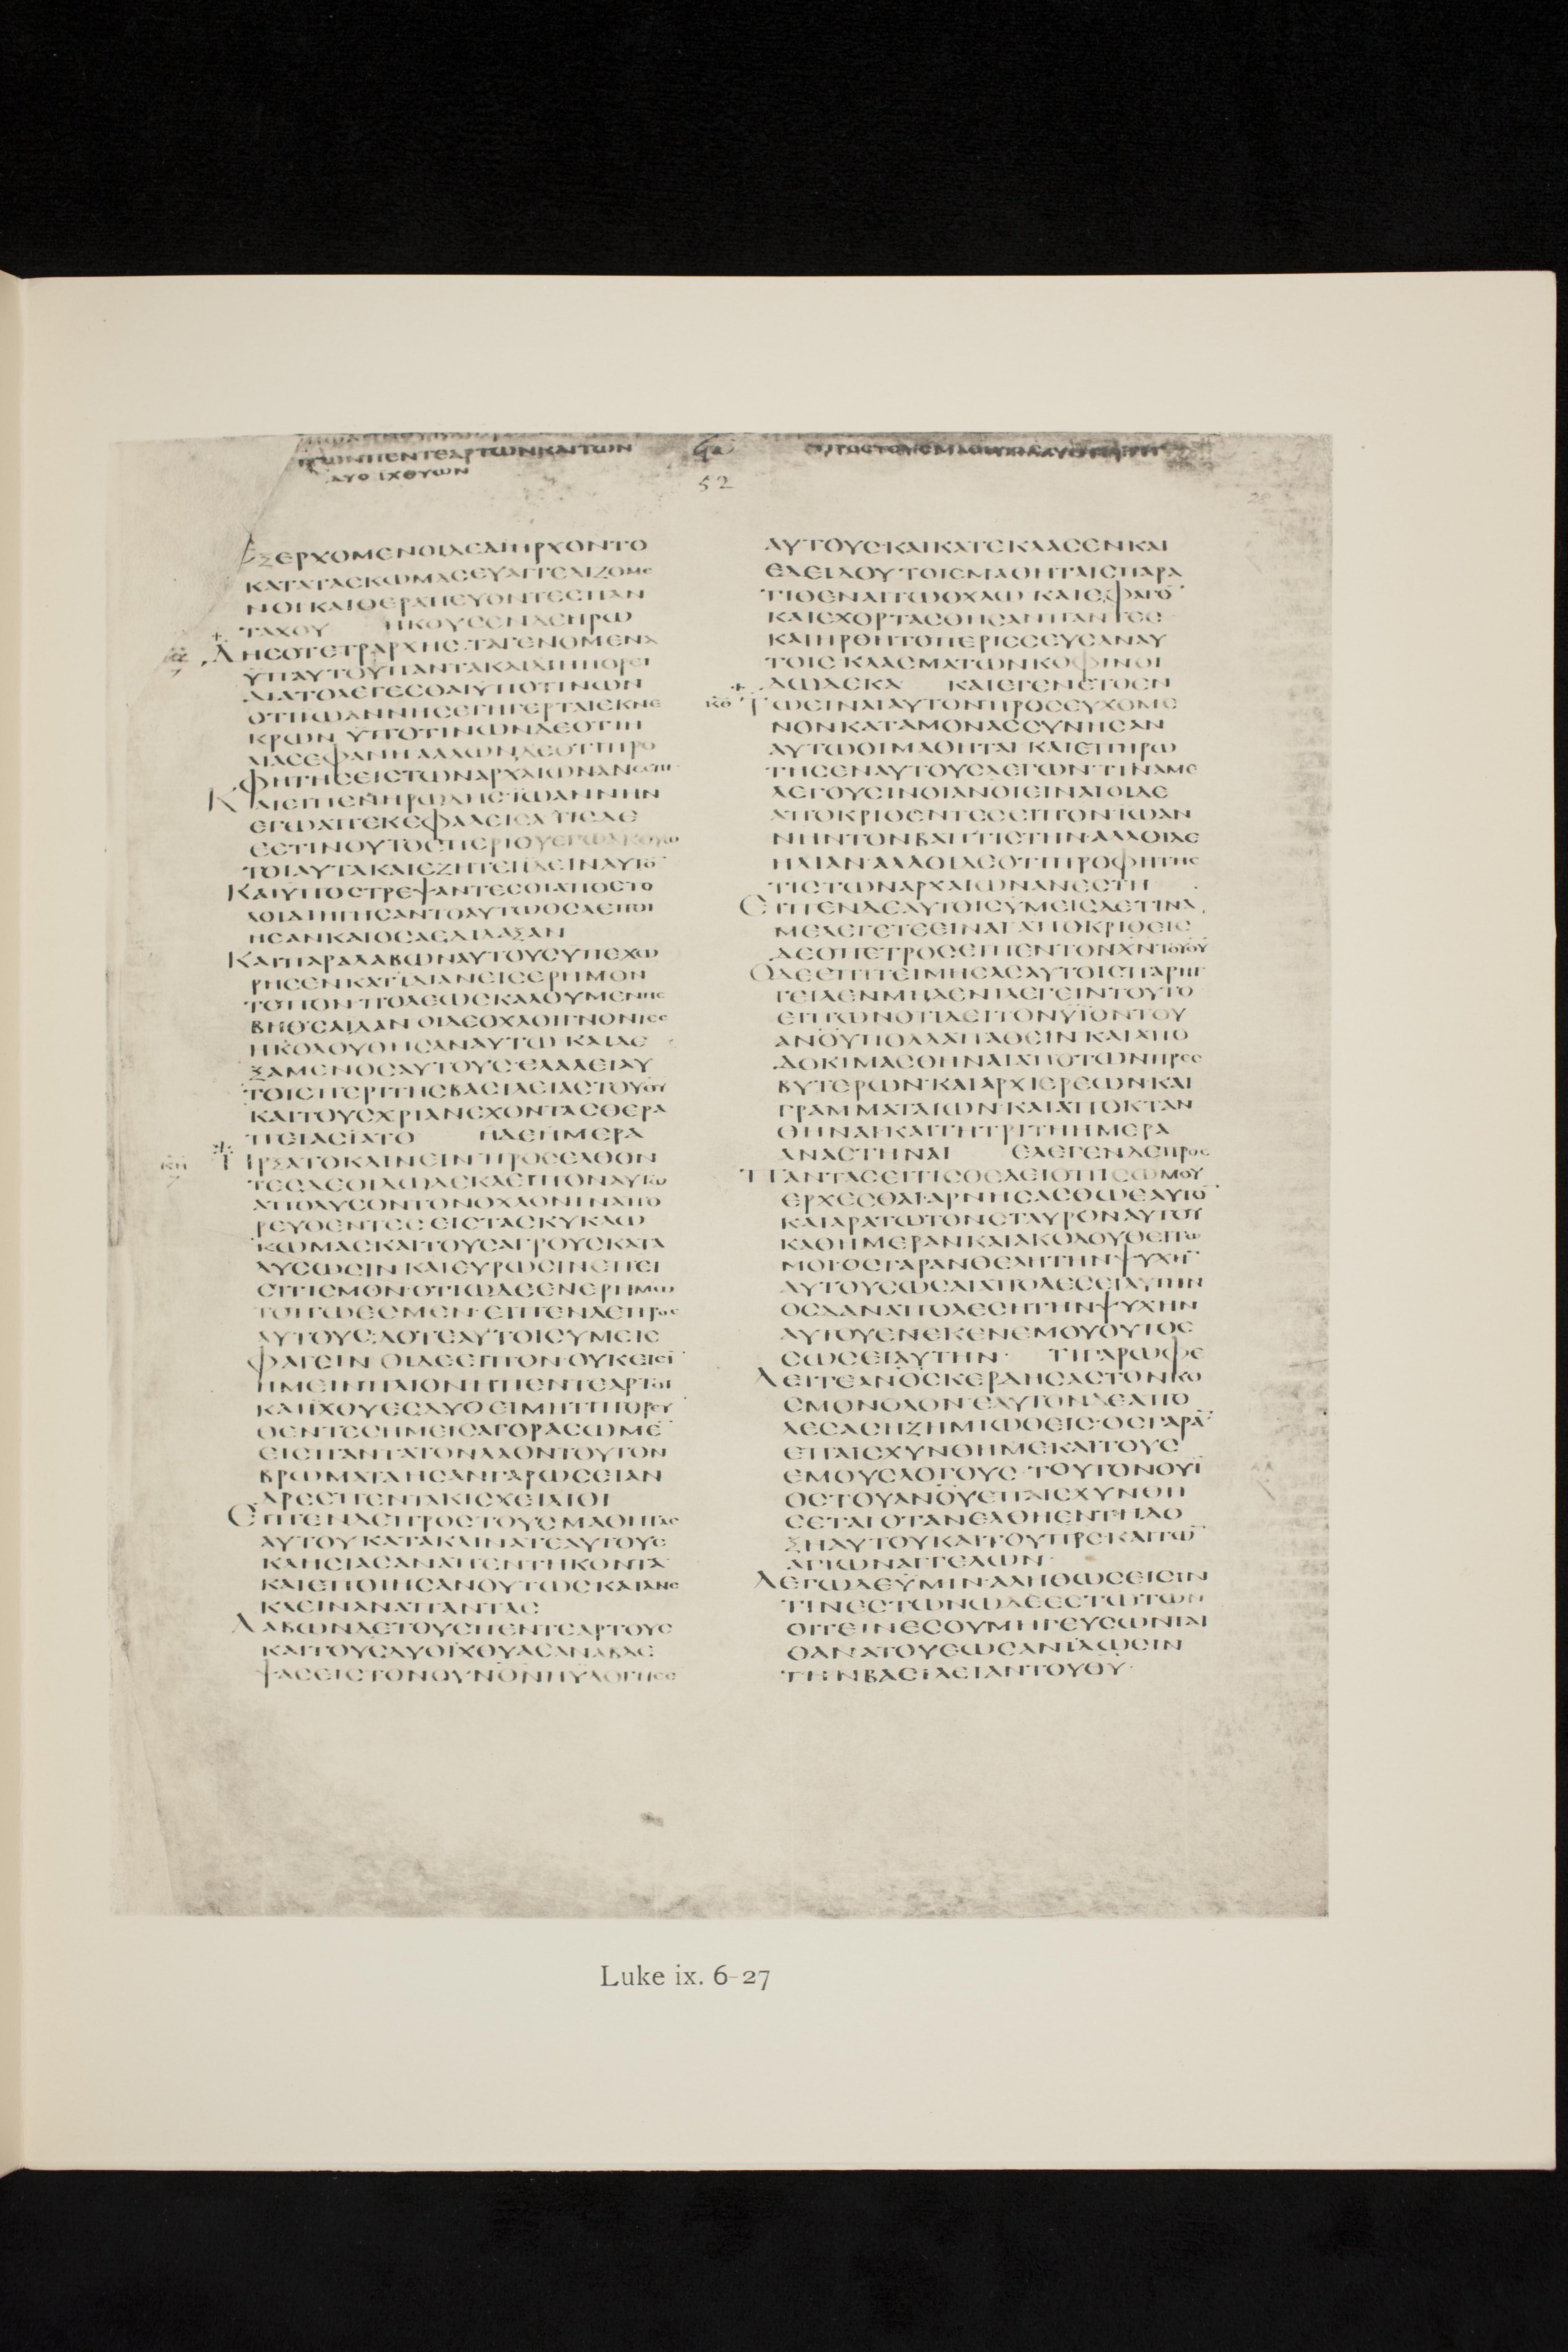 ΠΕΝΤΕΑΡΤΩΝΚΑΙΤΩΝ
ΔΥΟ ΙΧΘΥΩΝ
52
ΕΞΕΡΧΟΜΕΝΟΙΔΕΔΙΗΡΧΟΝΤΟ
ΚΑΤΑΤΑΣΚΩΜΑСΕΥΑΓΓΕΛΙΖΟΜΕ
ΝΟΙΚΑΙΘΕΡΑΠΕΥΟΝΤΕСΠΑΝ
ΤΑΧΟΥ ΗΚΟΥСΕΝΔΕΗΡΩ
ΔΗСΟΤΕΤΡΑΡΧΗС·ΤΑΓΕΝΟΜΕΝΑ
ΫΠΑΥΤΟΥΠΑΝΤΑΚΑΙΔΙΗΠΟΡΕΙ
ΔΙΑΤΟΛΕΓΕСΘΑΙΥΠΟΤΙΝΩΝ
ΟΤΙΙΩΑΝΝΗССΓΗΓΕΡΤΑΙΕΚΝΕ
ΚΡΩΝ ΥΠΟΤΙΝΩΝΔΕΟΤΙΗ
ΛΙΑСΕΦΑΝΗΑΛΛΩΝΔΕΟΤΙΠΡΟ
ΦΗΤΗСΕΙСΤΩΝΑΡΧΑΙΩΝΑΝΕСΤΗ·
ΚΑΙΕΙΠΕΝΗΡΩΔΗС·ΪΩΑΝΝΗΝ
ΕΓΩΑΠΕΚΕΦΑΛΕΙСΑ ΤΙСΔΕ
ΕСΤΙΝΟΥΤΟСΠΕΡΙΟΥΕΓΩΑΚΟΥΩ
ΤΟΙΑΥΤΑΚΑΙΕΖΗΤΕΙΪΔΕΙΝΑΥΤΟ̅
ΚΑΙΫΠΟСΤΡΕΨΑΝΤΕСΟΙΑΠΟСΤΟ
ΛΟΙΔΙΗΓΗСΑΝΤΟΑΥΤΩΟСΑΕΠΟΙ
ΗСΑΝΚΑΙΟСΑΕΔΙΔΑΞΑΝ
ΚΑΙΠΑΡΑΛΑΒΩΝΑΥΤΟΥСΥΠΕΧΩ
ΡΗСΕΝΚΑΤΪΔΙΑΝΕΙСΕΡΗΜΟΝ
ΤΟΠΟΝ·ΠΟΛΕΩСΚΑΛΟΥΜΕΝΗС
ΒΗΘСΑΪΔΑΝ ΟΙΔΕΟΧΛΟΙΓΝΟΝΤΕС
ΗΚΟΛΟΥΘΗСΑΝΑΥΤΩ ΚΑΙΔΕ
ΞΑΜΕΝΟСΑΥΤΟΥС·ΕΛΑΛΕΙΑΥ
ΤΟΙСΠΕΡΙΤΗСΒΑСΙΛΕΙΑСΤΟΥΘΥ
ΚΑΙΤΟΥСΧΡΙΑΝΕΧΟΝΤΑСΘΕΡΑ
ΠΕΙΑСΙΑΤΟ ΗΔΕΗΜΕΡΑ
κη ΗΡΞΑΤΟΚΛΙΝΕΙΝ·ΠΡΟСΕΛΘΟΝ
ΤΕСΔΕΟΙΔΩΔΕΚΑΕΙΠΟΝΑΥΤΩ
ΑΠΟΛΥСΟΝΤΟΝΟΧΛΟΝΙΝΑΠΟ
ΡΕΥΘΕΝΤΕС ΕΙСΤΑСΚΥΚΛΩ
ΚΩΜΑСΚΑΙΤΟΥСΑΓΡΟΥСΚΑΤΑ
ΛΥСΩСΙΝ ΚΑΙΕΥΡΩСΙΝΕΠΕΙ
СΙΤΙСΜΟΝ·ΟΤΙΩΔΕΕΝΕΡΗΜΩ
ΤΟΠΩΕСΜΕΝ·ΕΙΠΕΝΔΕΠΡΟС
ΑΥΤΟΥС·ΔΟΤΕΑΥΤΟΙСΥΜΕΙС
ΦΑΓΕΙΝ ΟΙΔΕΕΙΠΟΝ·ΟΥΚΕΙСΙ̅
ΗΜΕΙΝΠΛΙΟΝΗΠΕΝΤΕΑΡΤΟΙ
ΚΑΙΪΧΘΥΕСΔΥΟ·ΕΙΜΗΤΙΠΟΡΕΥ
ΘΕΝΤΕСΗΜΕΙСΑΓΟΡΑСΩΜΕ̅
ΕΙСΠΑΝΤΑΤΟΝΛΑΟΝΤΟΥΤΟΝ
ΒΡΩΜΑΤΑΗСΑΝΓΑΡΩСΕΙΑΝ
ΔΡΕСΠΕΝΤΑΚΙСΧΕΙΛΙΟΙ
ΕΙΠΕΝΔΕΠΡΟСΤΟΥСΜΑΘΗΤΑС
ΑΥΤΟΥ·ΚΑΤΑΚΛΙΝΑΤΕΑΥΤΟΥС
ΚΛΗСΙΑСΑΝΑΠΕΝΤΗΚΟΝΤΑ
ΚΑΙΕΠΟΙΗСΑΝΟΥΤΩСΚΑΙΑΝΕ
ΚΛΕΙΝΑΝΑΠΑΝΤΑС
ΛΑΒΩΝΔΕΤΟΥСΠΕΝΤΕΑΡΤΟΥС
ΚΑΙΤΟΥСΔΥΟΪΧΘΥΑСΑΝΑΒΛΕ
ΨΑСΕΙСΤΟΝΟΥΝΟΝΗΥΛΟΓΗСΕ
ΑΥΤΟΥС·ΚΑΙΚΑΤΕΚΛΑСΕΝΚΑΙ
ΕΔΕΙΔΟΥ ΤΟΙСΜΑΘΗΤΑΙСΠΑΡΑ
ΤΙΘΕΝΑΙΤΩΟΧΛΩ ΚΑΙΕΦΑΓΟ̅
ΚΑΙΕΧΟΡΤΑСΘΗСΑΝΠΑΝΤΕС
ΚΑΙΗΡΘΗΤΟΠΕΡΙССΕΥСΑΝΑΥ
ΤΟΙС ΚΛΑСΜΑΤΩΝΚΟΦΙΝΟΙ
ΔΩΔΕΚΑ ΚΑΙΕΓΕΝΕΤΟΕΝ
κθ ΤΩΕΙΝΑΙΑΥΤΟΝΠΡΟСΕΥΧΟΜΕ
ΝΟΝΚΑΤΑΜΟΝΑССΥΝΗСΑΝ
ΑΥΤΩΟΙΜΑΘΗΤΑΙ ΚΑΙΕΠΗΡΩ
ΤΗСΕΝΑΥΤΟΥСΛΕΓΩΝ·ΤΙΝΑΜΕ
ΛΕΓΟΥСΙΝΟΙΑΝΟΙΕΙΝΑΙΟΙΔΕ
ΑΠΟΚΡΙΘΕΝΤΕСΕΙΠΟΝ·ΪΩΑΝ
ΝΗΝΤΟΝΒΑΠΤΙСΤΗΝ·ΑΛΛΟΙΔΕ
ΗΛΙΑΝ·ΑΛΛΟΙΔΕΟΤΙΠΡΟΦΗΤΗС
ΤΙСΤΩΝΑΡΧΑΙΩΝΑΝΕСΤΗ
ΕΙΠΕΝΔΕΑΥΤΟΙСΥΜΕΙСΔΕΤΙΝΑ
ΜΕΛΕΓΕΤΕΕΙΝΑΙ ΑΠΟΚΡΙΘΕΙС
ΔΕΟΠΕΤΡΟСΕΙΠΕΝΤΟΝΧ̅Ν̅ΤΟΥΘΥ
ΟΔΕΕΠΙΤΕΙΜΗСΑСΑΥΤΟΙСΠΑΡΗΓ
ΓΕΙΛΕΝΜΗΔΕΝΙΛΕΓΕΙΝΤΟΥΤΟ
ΕΙΠΩΝΟΤΙΔΕΙΤΟΝΥΪΟΝΤΟΥ
ΑΝΟΥΠΟΛΛΑΠΑΘΕΙΝ ΚΑΙΑΠΟ
ΔΟΚΙΜΑСΘΗΝΑΙΑΠΟΤΩΝΠΡΕС
ΒΥΤΕΡΩΝ·ΚΑΙΑΡΧΙΕΡΕΩΝΚΑΙ
ΓΡΑΜΜΑΤΑΙΩΝ·ΚΑΙΑΠΟΚΤΑΝ
ΘΗΝΑΙ·ΚΑΙΤΗΤΡΙΤΗΗΜΕΡΑ
ΑΝΑСΤΗΝΑΙ ΕΛΕΓΕΝΔΕΠΡΟС
ΠΑΝΤΑСΕΙΤΙСΘΕΛΕΙΟΠΙСΩΜΟΥ
ΕΡΧΕСΘΑΙ·ΑΡΝΗСΑСΘΩΕΑΥΤΟ̅
ΚΑΙΑΡΑΤΩΤΟΝСΤΑΥΡΟΝΑΥΤΟΥ
ΚΑΘΗΜΕΡΑΝΚΑΙΑΚΟΛΟΥΘΕΙΤΩ
ΜΟΙ·ΟСΓΑΡΑΝΘΕΛΗΤΗΝΨΥΧΗ̅
ΑΥΤΟΥСΩСΑΙΑΠΟΛΕСΕΙΑΥΤΗΝ
ΟСΔΑΝΑΠΟΛΕСΗΤΗΝΨΥΧΗΝ
ΑΥΤΟΥΕΝΕΚΕΝΕΜΟΥΟΥΤΟС
СΩСΕΙΑΥΤΗΝ· ΤΙΓΑΡΩΦΕ
ΛΕΙΤΕΑΝΟСΚΕΡΔΗСΑСΤΟΝΚΟ
СΜΟΝΟΛΟΝ·ΕΑΥΤΟΝΔΕΑΠΟ
ΛΕСΑСΗΖΗΜΙΩΘΕΙС·ΟСΓΑΡΑ̅
ΕΠΑΙСΧΥΝΘΗΜΕΚΑΙΤΟΥС
ΕΜΟΥСΛΟΓΟΥС·ΤΟΥΤΟΝΟΥΪ
ΟСΤΟΥΑΝΟΥΕΠΑΙСΧΥΝΘΗ
СΕΤΑΙΟΤΑΝΕΛΘΗΕΝΤΗΔΟ
ΞΗΑΥΤΟΥΚΑΙΤΟΥΠΡС·ΚΑΙΤΩ̅
ΑΓΙΩΝΑΓΓΕΛΩΝ·
ΛΕΓΩΔΕΫΜΙΝ·ΑΛΗΘΩСΕΙСΙΝ
ΤΙΝΕСΤΩΝΩΔΕΕСΤΩΤΩΝ
ΟΙΤΕΙΝΕСΟΥΜΗΓΕΥСΩΝΤΑΙ
ΘΑΝΑΤΟΥΕΩСΑΝΪΔΩСΙΝ
ΤΗΝΒΑСΙΛΕΙΑΝΤΟΥΘΥ·
Luke ix. 6-27